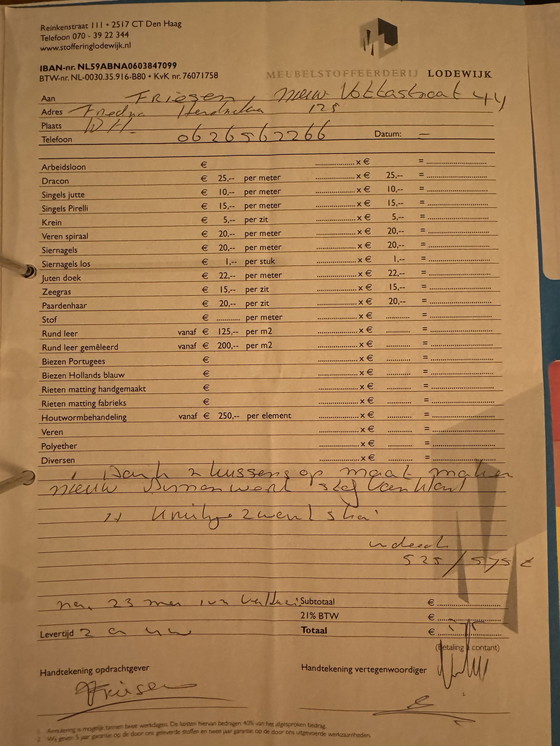 Reinkenstraat 111 • 2517 CT Den Haag
Telefoon 070 - 39 22 344
www.stofferinglodewijk.nl
IBAN-nr. NL59ABNA0603847099
BTW-nr. NL-0030.35.916-B80 • KvK nr. 76071758
MEUBELSTOFFEERDERIJ LODEWIJK
Aan Friesen, nieuw
Adres 125
Plaats
Telefoon 0626562266 Datum: —
Arbeidsloon € x € =
Dracon € 25,-- per meter x € 25,-- =
Singels jutte € 10,-- per meter x € 10,-- =
Singels Pirelli € 15,-- per meter x € 15,-- =
Krein € 5,-- per zit x € 5,-- =
Veren spiraal € 20,-- per meter x € 20,-- =
Siernagels € 20,-- per meter x € 20,-- =
Siernagels los € 1,-- per stuk x € 1,-- =
Juten doek € 22,-- per meter x € 22,-- =
Zeegras € 15,-- per zit x € 15,-- =
Paardenhaar € 20,-- per zit x € 20,-- =
Stof € per meter x € =
Rund leer vanaf € 125,-- per m2 x € =
Rund leer gemêleerd vanaf € 200,-- per m2 x € =
Biezen Portugees € x € =
Biezen Hollands blauw € x € =
Rieten matting handgemaakt € x € =
Rieten matting fabrieks € x € =
Houtwormbehandeling vanaf € 250,-- per element x € =
Veren x € =
Polyether x € =
Diversen x € =
2 kussens op maat maken
nieuw binnenwerk
525 / 575 €
23 mei Subtotaal €
21% BTW €
Levertijd 2 Totaal €
(betaling à contant)
Handtekening opdrachtgever Handtekening vertegenwoordiger
Friesen
1 Annulering is mogelijk binnen twee werkdagen. De kosten hiervan bedragen 40% van het afgesproken bedrag.
2 Wij geven 5 jaar garantie op de door ons geleverde stoffen en twee jaar garantie op de door ons uitgevoerde werkzaamheden.